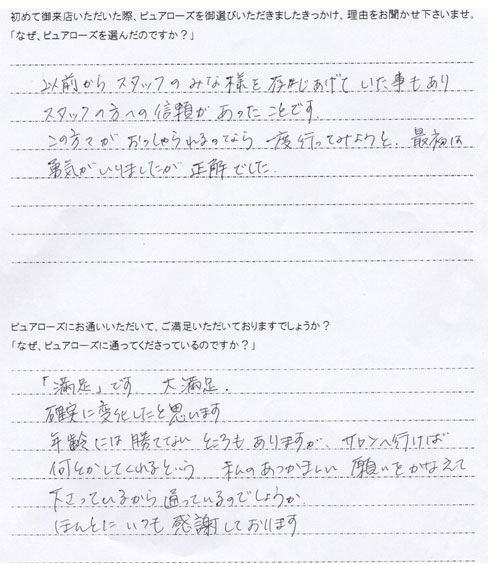 初めて御来店いただいた際、ピュアローズを御選びいただきましたきっかけ、理由をお聞かせ下さいませ。
「なぜ、ピュアローズを選んだのですか?」
以前から スタッフのみな様を存じあげていた事もあり
スタッフの方への信頼があったことです.
この方々が おっしゃられるのなら 一度行ってみようと、最初は
勇気がいりましたが 正解でした.
ピュアローズにお通いいただいて、ご満足いただいておりますでしょうか?
「なぜ、ピュアローズに通ってくださっているのですか?」
「満足」です 大満足.
確実に変化したと思います
年齢には勝てない ところもありますが、サロンへ行けば
何とかしてくれるという 私のあつかましい 願いをかなえて
下さっているから 通っているのでしょうか.
ほんとに いつも 感謝しております